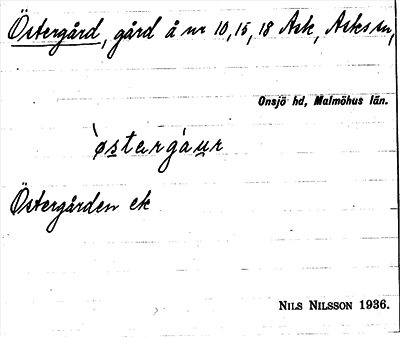 Östergård, gård å nr 10, 15, 18 Ask, Asks sn,
Onsjö hd, Malmöhus län.
`østərgꞌaur
Östergården ek
NILS NILSSON 1936.